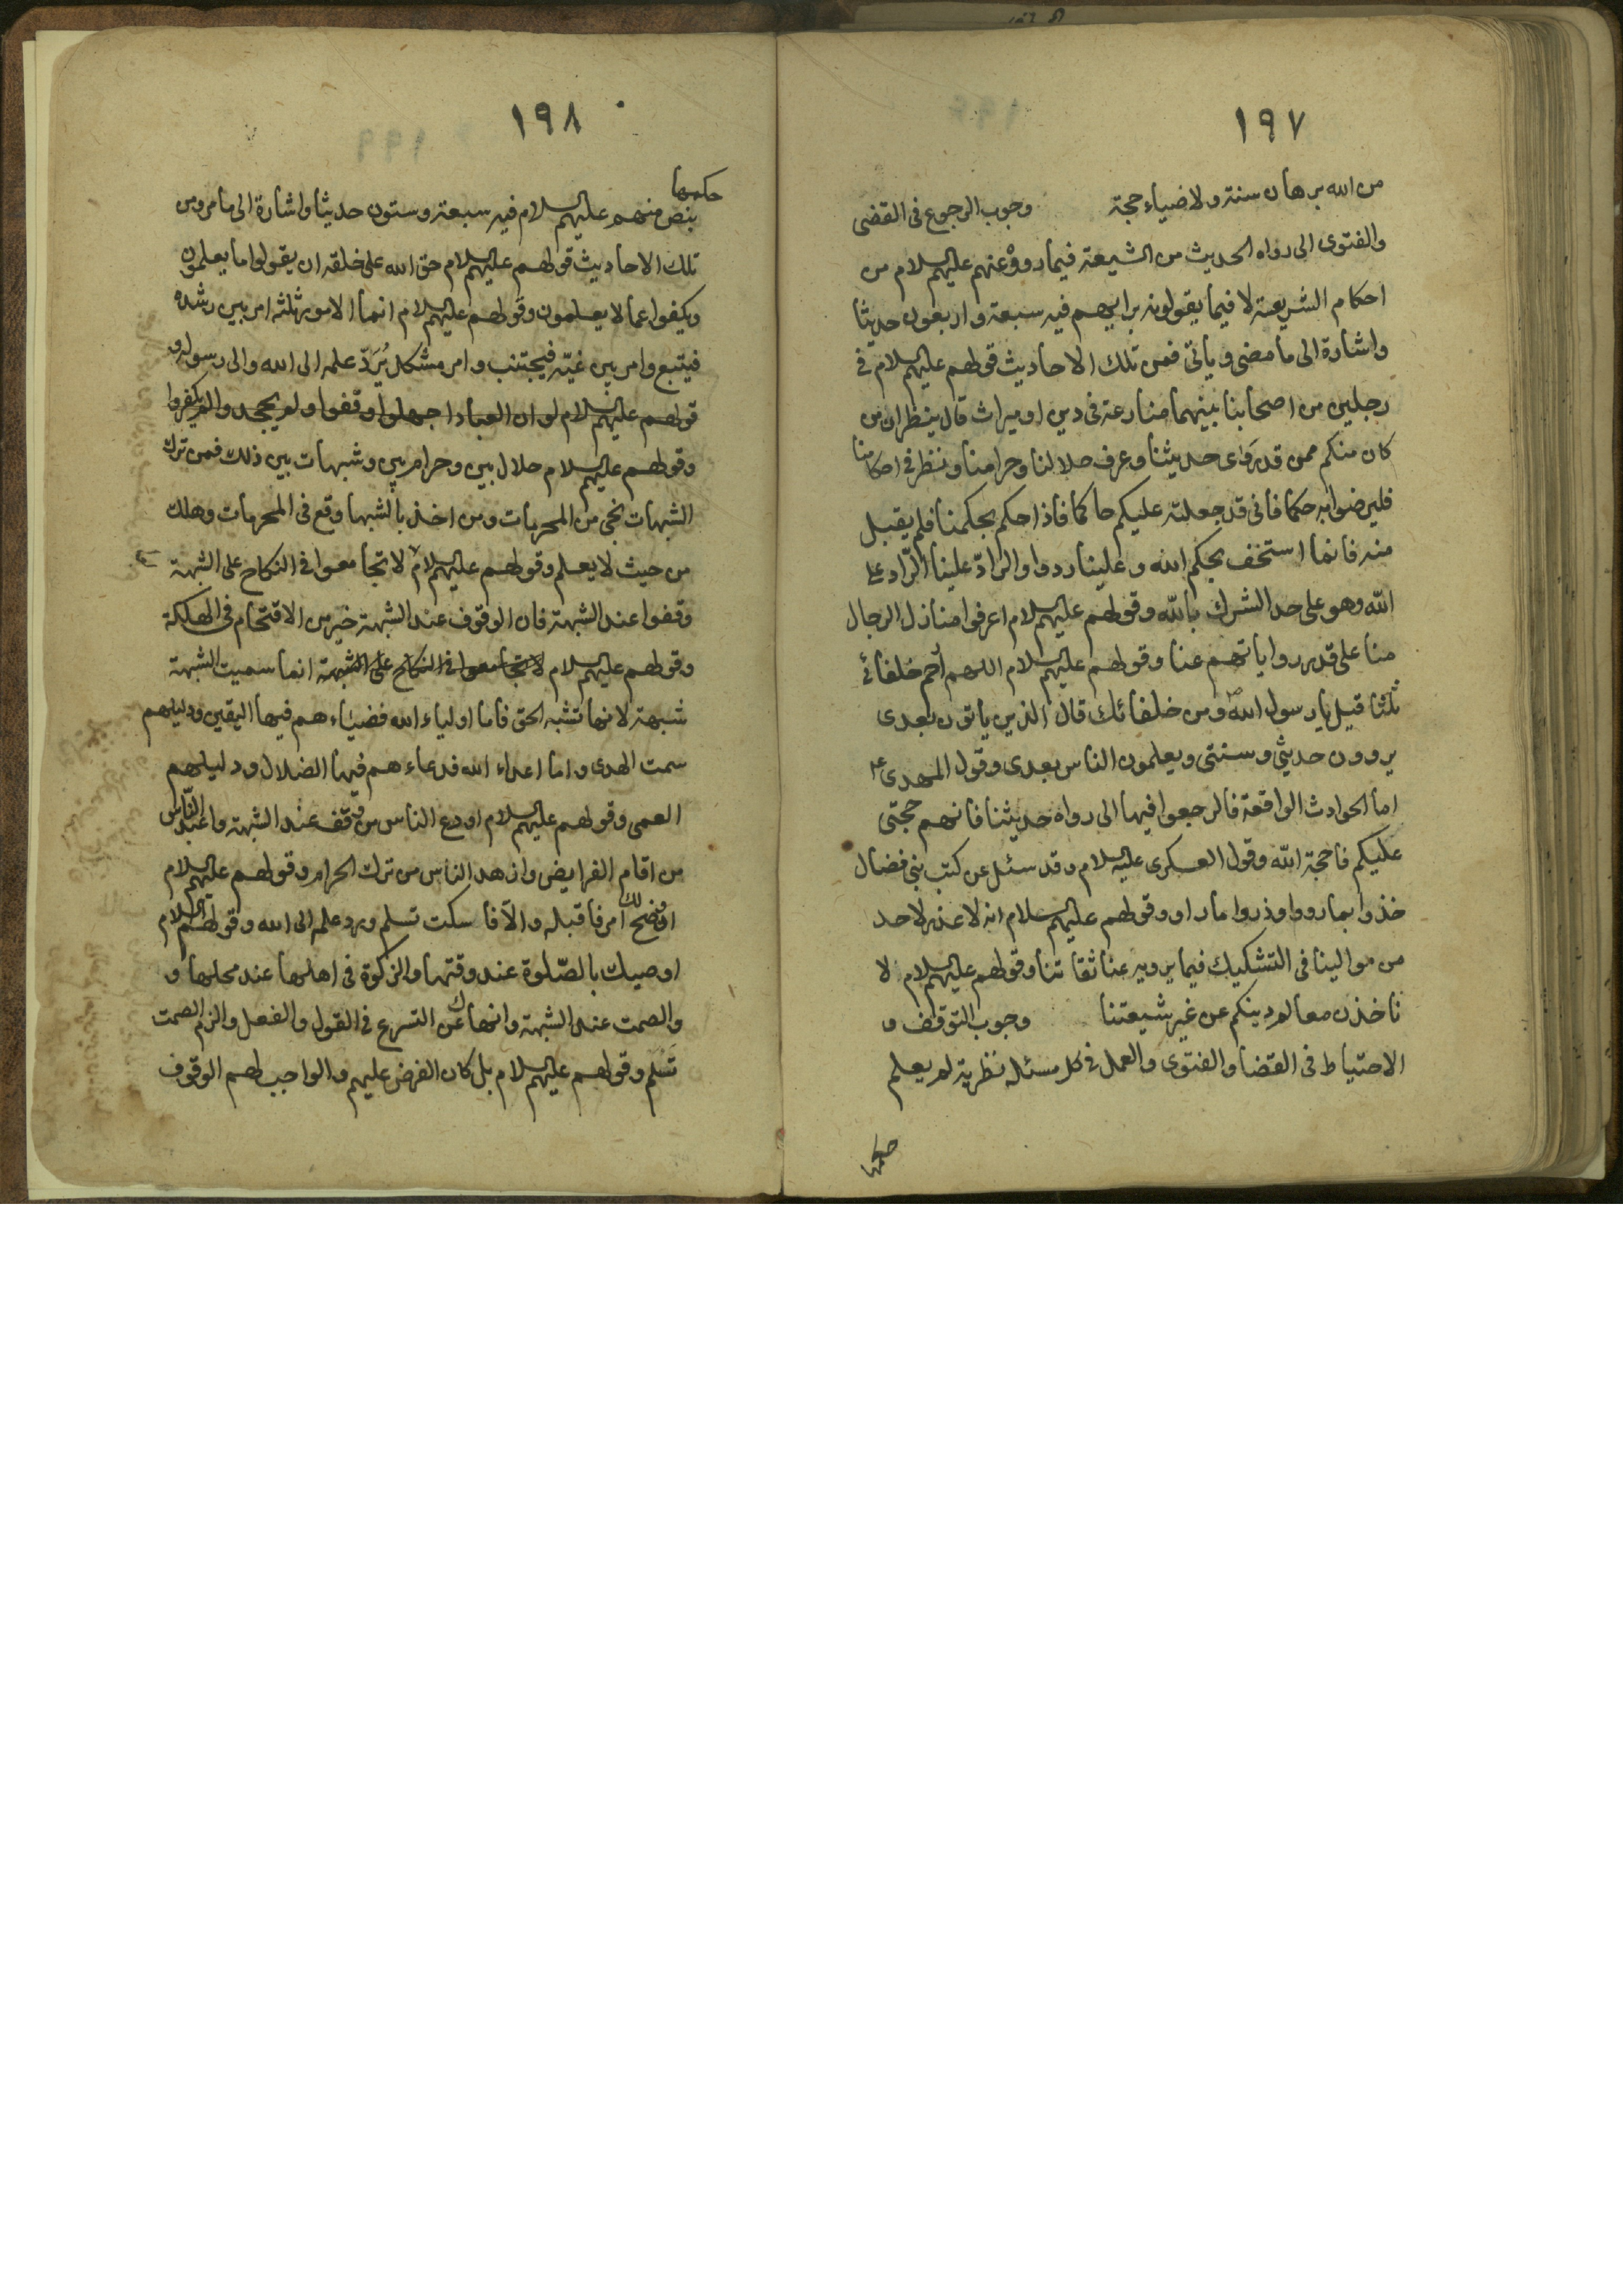 ١٩٧
من الله برهان سنة ولا ضياء حجة وجوب الرجوع فى القضى
والفتوى الى رواه الحديث من الشيعة فيما رووْ عنهم عليهم السلام من
احكام الشريعة لا فيما يقولونه برايهم فيه سبعة واربعون حديثا
واشارة الى ما مضى وياتى فمن تلك الاحاديث قولهم عليهم السلام فى
رجلين من اصحابنا بينهما منازعة فى دين او ميراث قال ينظران من
كان منكم ممن قد روى حديثنا وعرف حلالنا وحرامنا ونظر فى احكامنا
فليرضوا به حكما فانى قد جعلته عليكم حاكما فاذا حكم بحكمنا فلم يقبل
منه فانما استخف بحكم الله وعلينا ردوا والرادّ علينا الرّاد على
الله وهو على حد الشرك بالله وقولهم عليهم السلام اعرفوا منازل الرجال
منا على قدر رواياتهم عنا وقولهم عليهم السلام اللهم ارحم خلفائى
ثلثا قيل يا رسول الله ص ومن خلفائك قال الذين ياتون بعدى
يروون حديثى وسنتى ويعلمون الناس بعدى وقول المهدى ع
اما الحوادث الواقعة فالرجعوا فيها الى رواه حديثنا فانهم حجتى
عليكم فاحجة الله وقول العسكرى عليه السلام وقد سئل عن كتب بنى فضال
خذوا بما رووا وذروا ما راو وقولهم عليهم سلام انه لا عذر لاحد
من موالينا فى التشكيك فيما يرويه عنا ثقاتنا وقولهم عليهم السلام لا
تاخذن معالم دينكم عن غير شيعتنا وجوب التوقف و
الاحتياط فى القضا والفتوى والعمل فى كل مسئله نظرية لم يعلم
حكمها
١٩٨
حكمها
بنص منهم عليهم السلام فيه سبعة وستون حديثا واشارة الى ما مر ومن
تلك الاحاديث قولهم عليهم السلام حق الله على خلقه ان يقولوا ما يعلمون
ويكفوا عما لا يعلمون وقولهم عليهم السلام انما الامور ثلثه امر بين رشده
فيتبع وامر بين غيّه فيجتنب وامر مشكل يُرَدّ علمه الى الله والى رسوله و
قولهم عليهم السلام لو ان العباد اجهلوا وقفوا ولم يجحدوا لم يكفروا
وقولهم عليهم السلام حلال بين وحرام بين وشبهات بين ذلك فمن ترك
الشبهات نجى من المحرمات ومن اخذ بالشبها وقع فى المحرمات وهلك
من حيث لا يعلم وقولهم عليهم السلام لا تجامعوا فى النكاح على الشبهة
وقفوا عند الشبهة فان الوقوف عند الشبهة خير من الاقتحام فى الهلكة
وقولهم عليهم السلام لا تجامعوا فى النكاح على الشبهة انما سميت الشبهة
شبهة لانها تشبه الحق فاما اولياء الله فضياء هم فيها اليقين ودليلهم
سمت الهدى واما اعداء الله فدعاء هم فيها الضلال ودليلهم
العمى وقولهم عليهم السلام اورع الناس من وقف عند الشبهة واعبد النّاس
من اقام الفرايض وازهد الناس من ترك الحرام وقولهم عليهم السلام
ا وضح لك امر فاقبله والاّ فا سكت تسلم ورد علمه الى الله وقولهم ع السلام
اوصيك بالصّلوة عند وقتها والزكوة فى اهلها عند محلها و
والصمت عند الشبهة وانهاك عن التسرع فى القول والفعل والزم الصمت
تَسلم وقولهم عليهم السلام بل كان الفرض عليهم والواجب لهم الوقوف